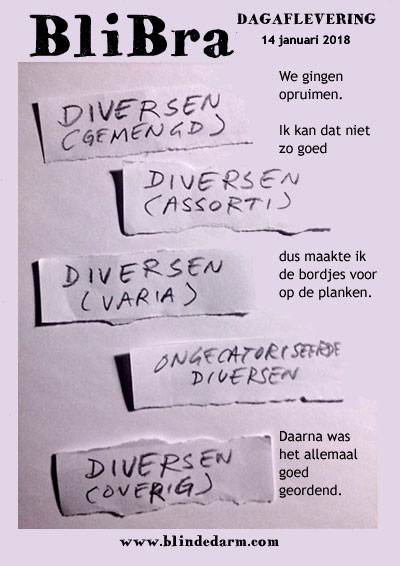 BliBra
DAGAFLEVERING
14 januari 2018
We gingen
opruimen.
Ik kan dat niet
zo goed
DIVERSEN
(GEMENGD)
DIVERSEN
(ASSORTI)
dus maakte ik
de bordjes voor
op de planken.
DIVERSEN
(VARIA)
ONGECATORISEERDE
DIVERSEN
Daarna was
het allemaal
goed
geordend.
DIVERSEN
(OVERIG)
www.blindedarm.com